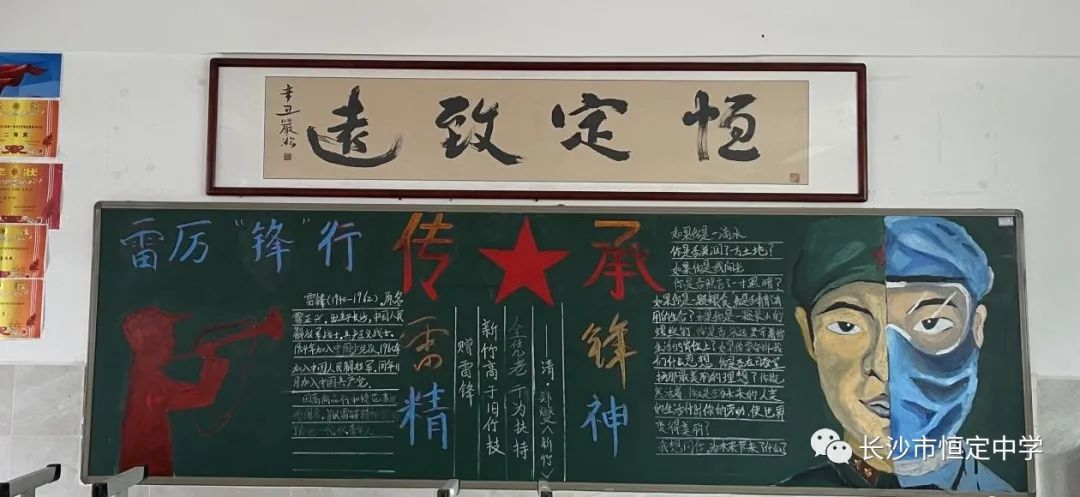 恒定致远
辛丑严松
雷厉“锋”行
传承
雷锋
精神
雷锋(1940-1962),原名
雷正兴,出生于长沙,中国人民
解放军战士,共产主义战士,
加入中国人民解放军,同年11
月加入中国共产党。
赠雷锋
新竹高于旧竹枝
全凭老干为扶持
——清·郑燮《新竹》
如果你是一滴水
你是否滋润了一方土地?
如果你是一线阳光
你是否照亮了一寸黑暗?
如果你是一颗粮食,你是否哺育了有
用的生命?如果你是一颗最小的
螺丝钉,你是否永远坚守着你
生活的岗位上?如果你要告诉我
们什么思想,你是否在日夜宣
扬那最美丽的理想?你既
然活着,你是否为未来的人类
的生活付出你的劳动,使世界
变得美丽?
我想问你,为未来带来了什么?
二等奖
长沙市恒定中学